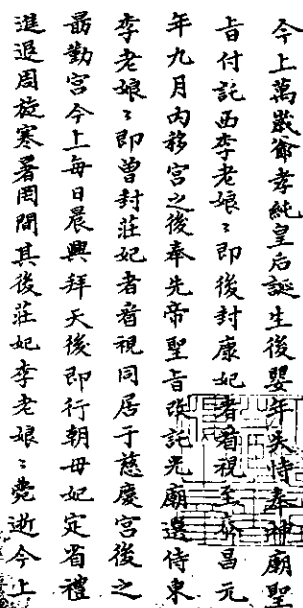 今上萬歲爺孝純皇后誕生後嬰年失恃奉神廟聖
旨付託西李老娘〻即後封康妃者看視至泰昌元
年九月內移宮之後奉先帝聖旨改託光廟選侍東
李老娘〻即曾封莊妃者看視同居于慈慶宮後之
勗勤宮今上每日晨興拜天後即行朝母妃定省禮
進退周旋寒署罔間其後莊妃李老娘〻薨逝今上